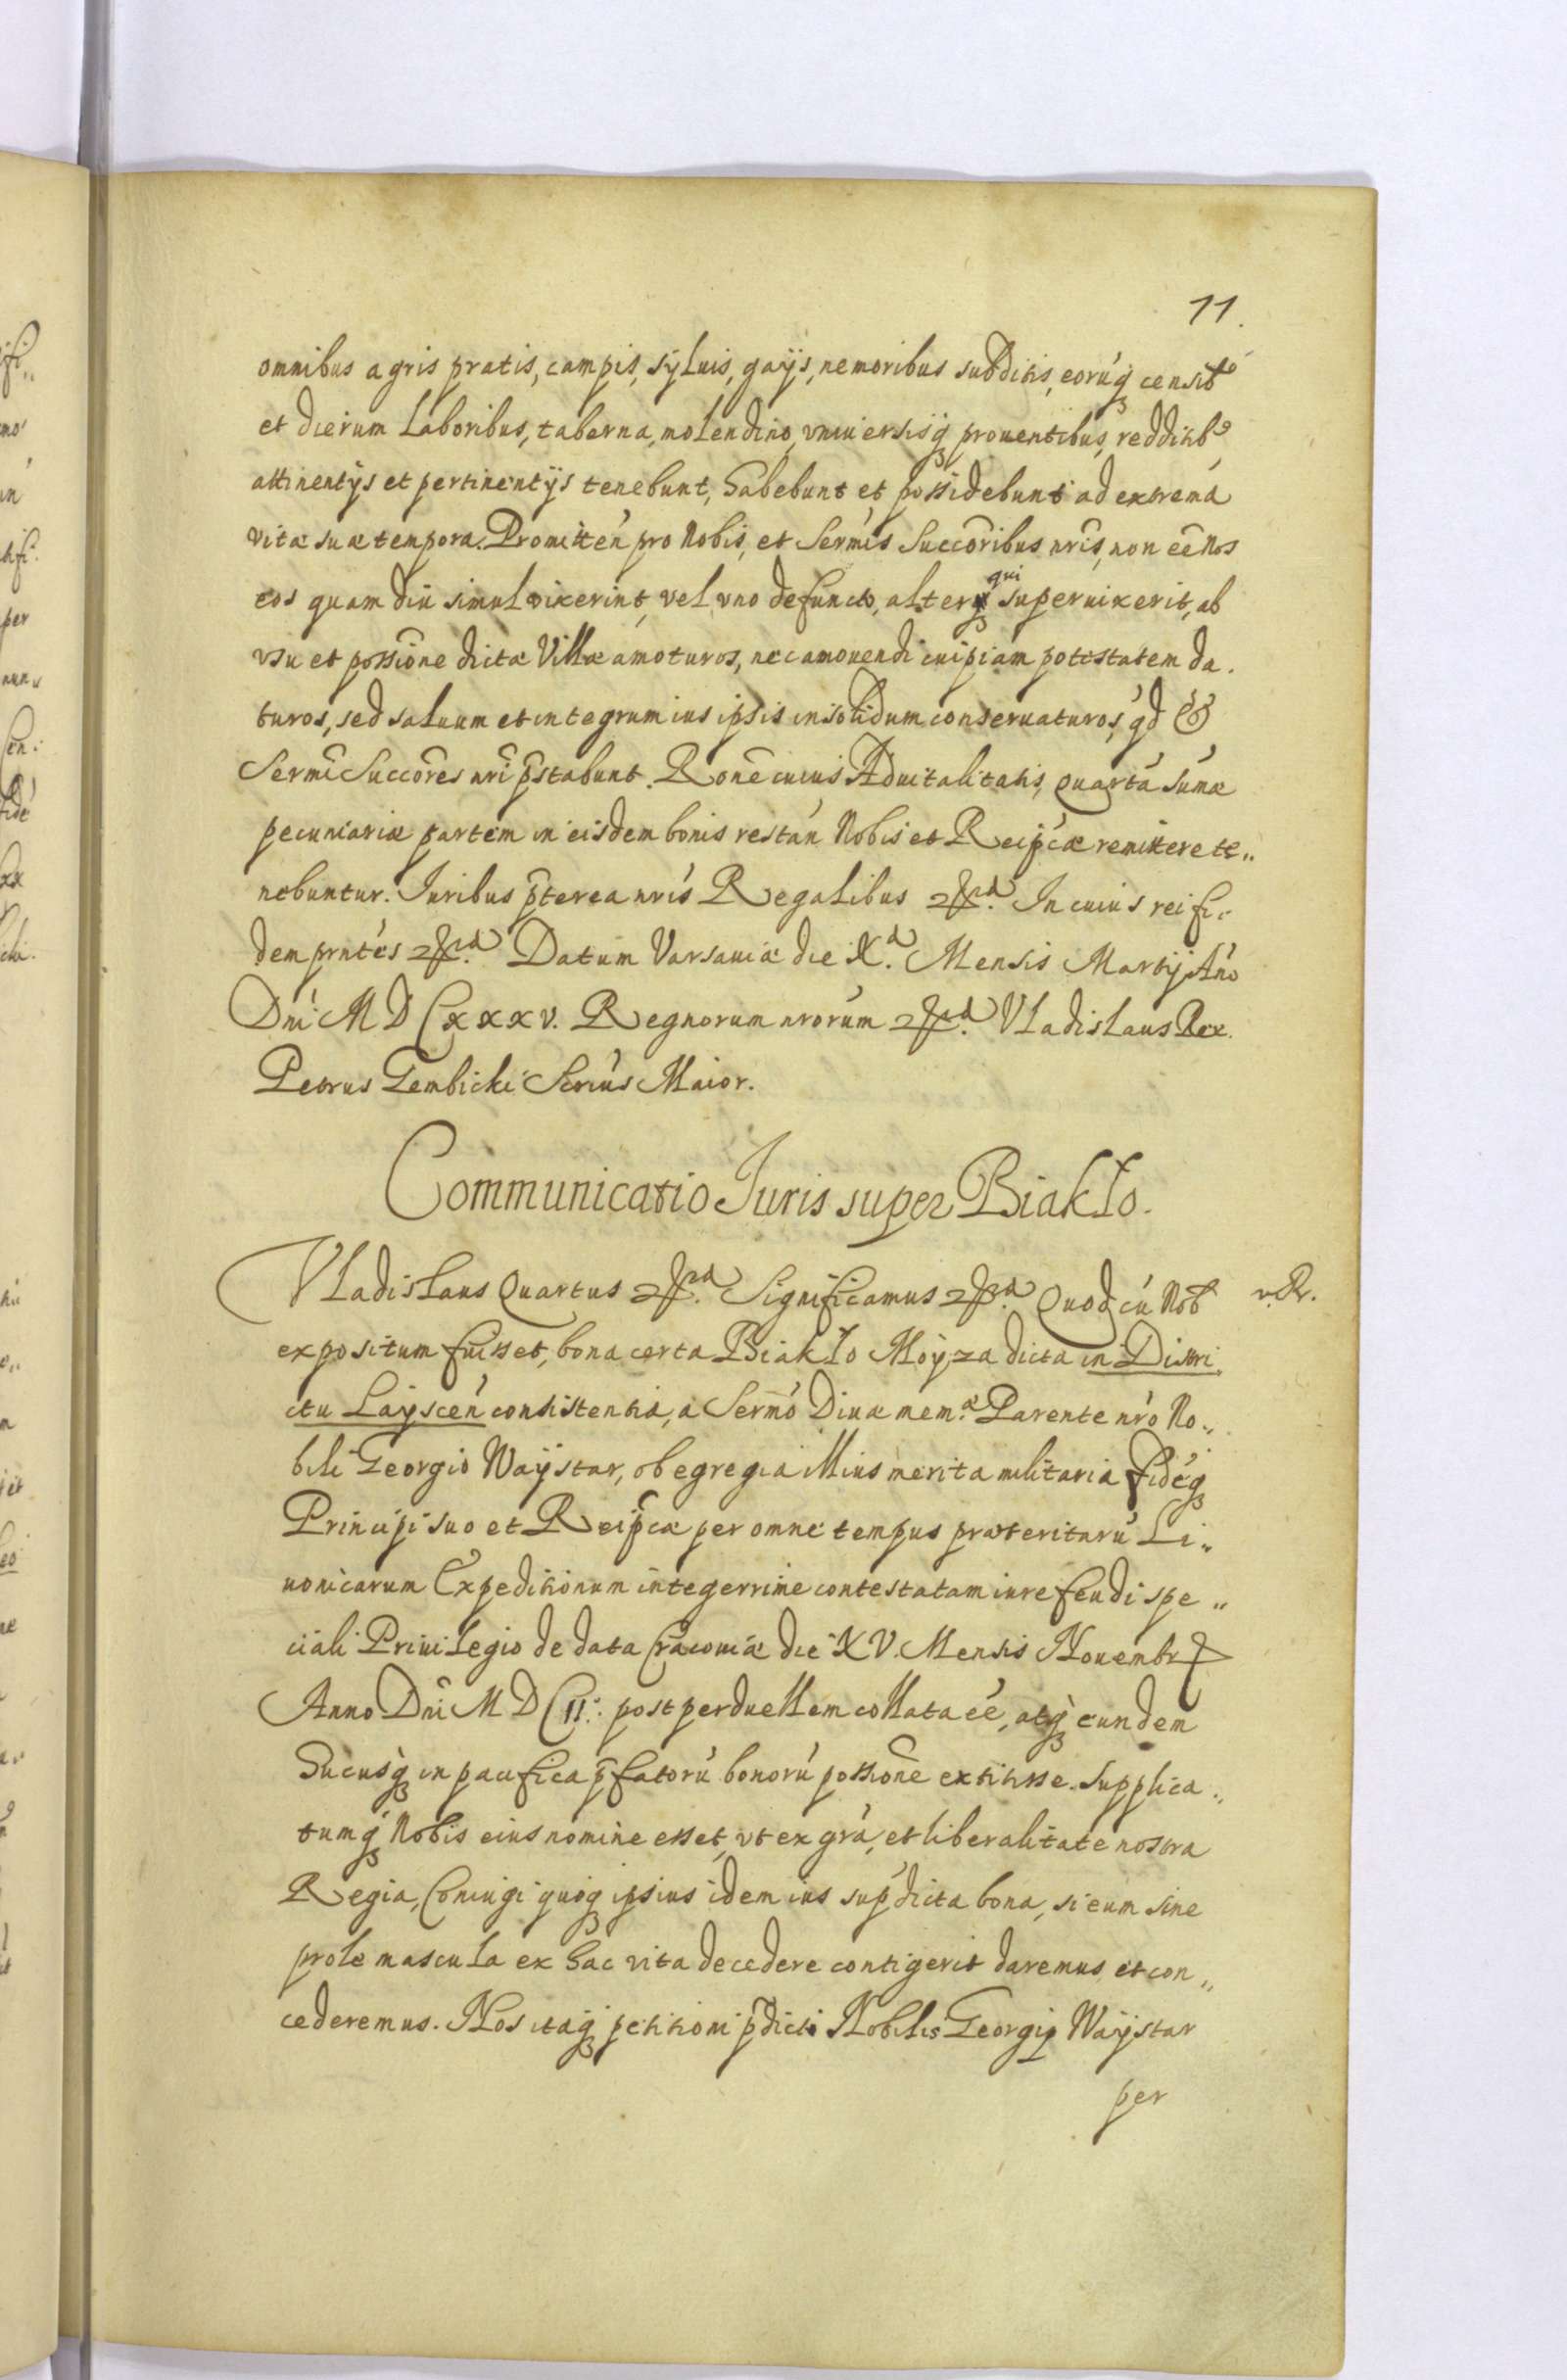 11.
omnibus agris pratis, campis, syluis, gaijs, nemoribus subditis, eorúq₃ censibꝰ
et dierum laboribus, taberna, molendino, vniuersisq₃ prouentibus, redditibꝰ
attinentijs et pertinentijs tenebunt, habebunt et possidebunt ad extremá
vitæ suæ tempora. Promitteń pro Nobis, et Serm̃is Succ̃oribus nr̃is, non eẽ Nos
eos quam diu simul vixerint, vel vno defuncto, alterq₃ qui superuixerit, ab
vsu et poss̃ione dictæ Villæ amoturos, nec amouendi cuipiam potestatem da.
turos, sed saluum et integrum ius ipsis in solidum conseruaturos, qd́ &
Serm̃i Succ̃ores nr̃i p̃stabunt. Rõne cuius Aduitalitatis, quartá sum̃æ
pecuniariæ partem in eisdem bonis restań Nobis et Reip̃cæ remittere te„
nebuntur. Iuribus p̃terea nr̃is Regalibus &cᵃ. In cuius rei fi:
dem prñtes &cᵃ. Datum Varsauiæ die Xᵃ. Mensis Martij Ańo
Dńi M D C xxxv. Regnorum nr̃orum &cᵃ. Vladislaus Rex.
Petrus Gembicki Scriús Maior.
Communicatio Iuris super Biakło.
Vladislaus Quartus &cᵃ. Significamus &cᵃ. Quod cú Nob̃ v. R.
expositum fuisset, bona certa Biakło Moyza dicta in Distri„
ctu Laysceń consistentia, a Serm̃o Diuæ mem.ᵃ Parente nr̃o No„
bili Georgio Waÿstar, ob egregia illius merita militaria fidéq₃
Principi suo et Reip̃cæ per omne tempus præteritarú Li„
uonicarum Expeditionum integerrime contestatam iure feudi spe„
ciali Priuilegio de data Cracouiæ die XV. Mensis Nouembr̃
Anno Dñi M D C II. post perduellem collata eé, atq₃ eundem
hucusq₃ in pacifica p̃fatorú bonorú possiõne extitisse. Supplica„
tumq₃ Nobis eius nomine esset, vt ex grá, et liberalitate nostra
Regia, Coniugi quoq₃ ipsius idem ius sup̃dicta bona, si eum sine
prole mascula ex hac vita decedere contigerit daremus et con„
cederemus. Nos itaq₃ petitioni p̃dicti Nobilis Georgij Waÿstar
per